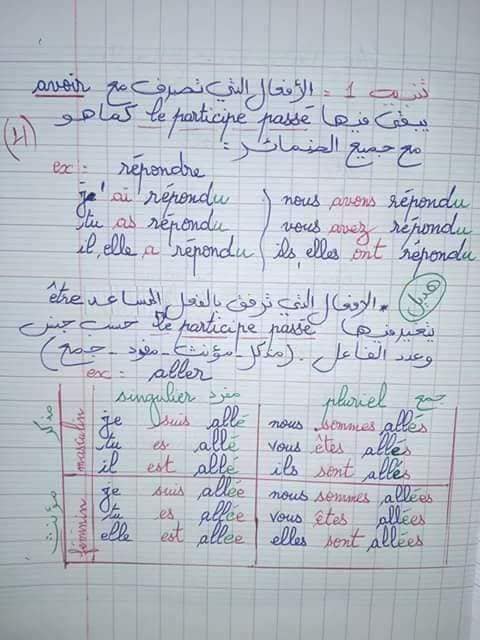 تنبيه 1 = الأفعال التي تصرف مع avoir
يبقى فيها le participe passé كما هو
مع جميع الضمائر :
(4)
ex : répondre
je' ai répondu
tu as répondu
il, elle a répondu
nous avons répondu
vous avez répondu
ils, elles ont répondu
هديل
* الأفعال التي ترفق بالفعل المساعد être
يتغير فيها le participe passé حسب جنس
وعدد الفاعل . (مذكر - مؤنث - مفرد - جمع)
ex : aller
singulier مفرد pluriel جمع
مذكر masculin
je suis allé nous sommes allés
tu es allé vous êtes allés
il est allé ils sont allés
مؤنث féminin
je suis allée nous sommes allées
tu es allée vous êtes allées
elle est allée elles sont allées